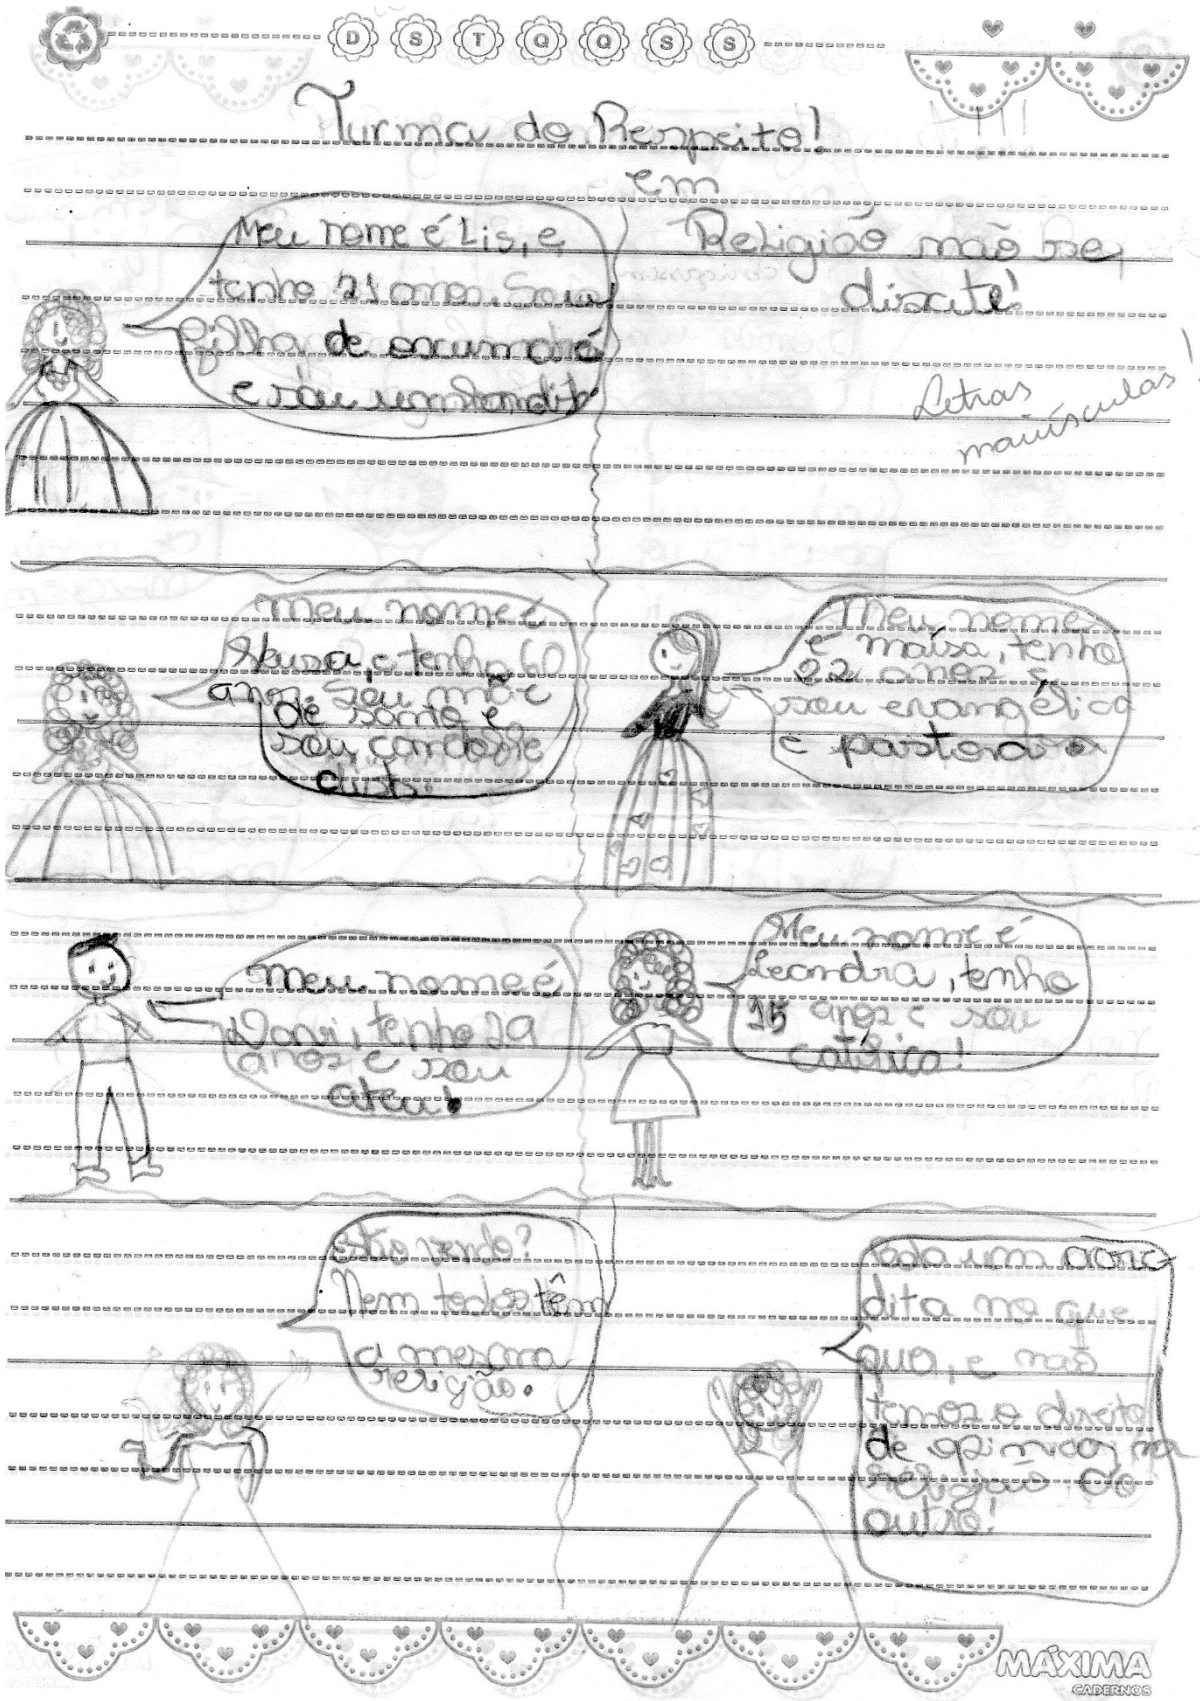 D S T Q Q S S
Turma do Respeito!
em
Religião não se
discute!
Letras
maiúsculas!
Meu nome é Lis, e
tenho 21 anos. Sou
filha de oxumaré
e sou umbandista.
Meu nome é
e tenho 60
anos. Sou mãe
de santo e
sou candomble
cista.
Meu nome
é maísa, tenho
22 anos
sou evangélica
e pastora
Meu nome é
Davi, tenho 29
anos e sou
ateu!
Meu nome é
Leandra, tenho
15 anos e sou
católica!
Estão vendo?
Nem todos têm
a mesma
religião.
Cada um acre
dita no que
qua, e não
temos o direito
de opinar na
religião do
outro!
MÁXIMA
CADERNOS